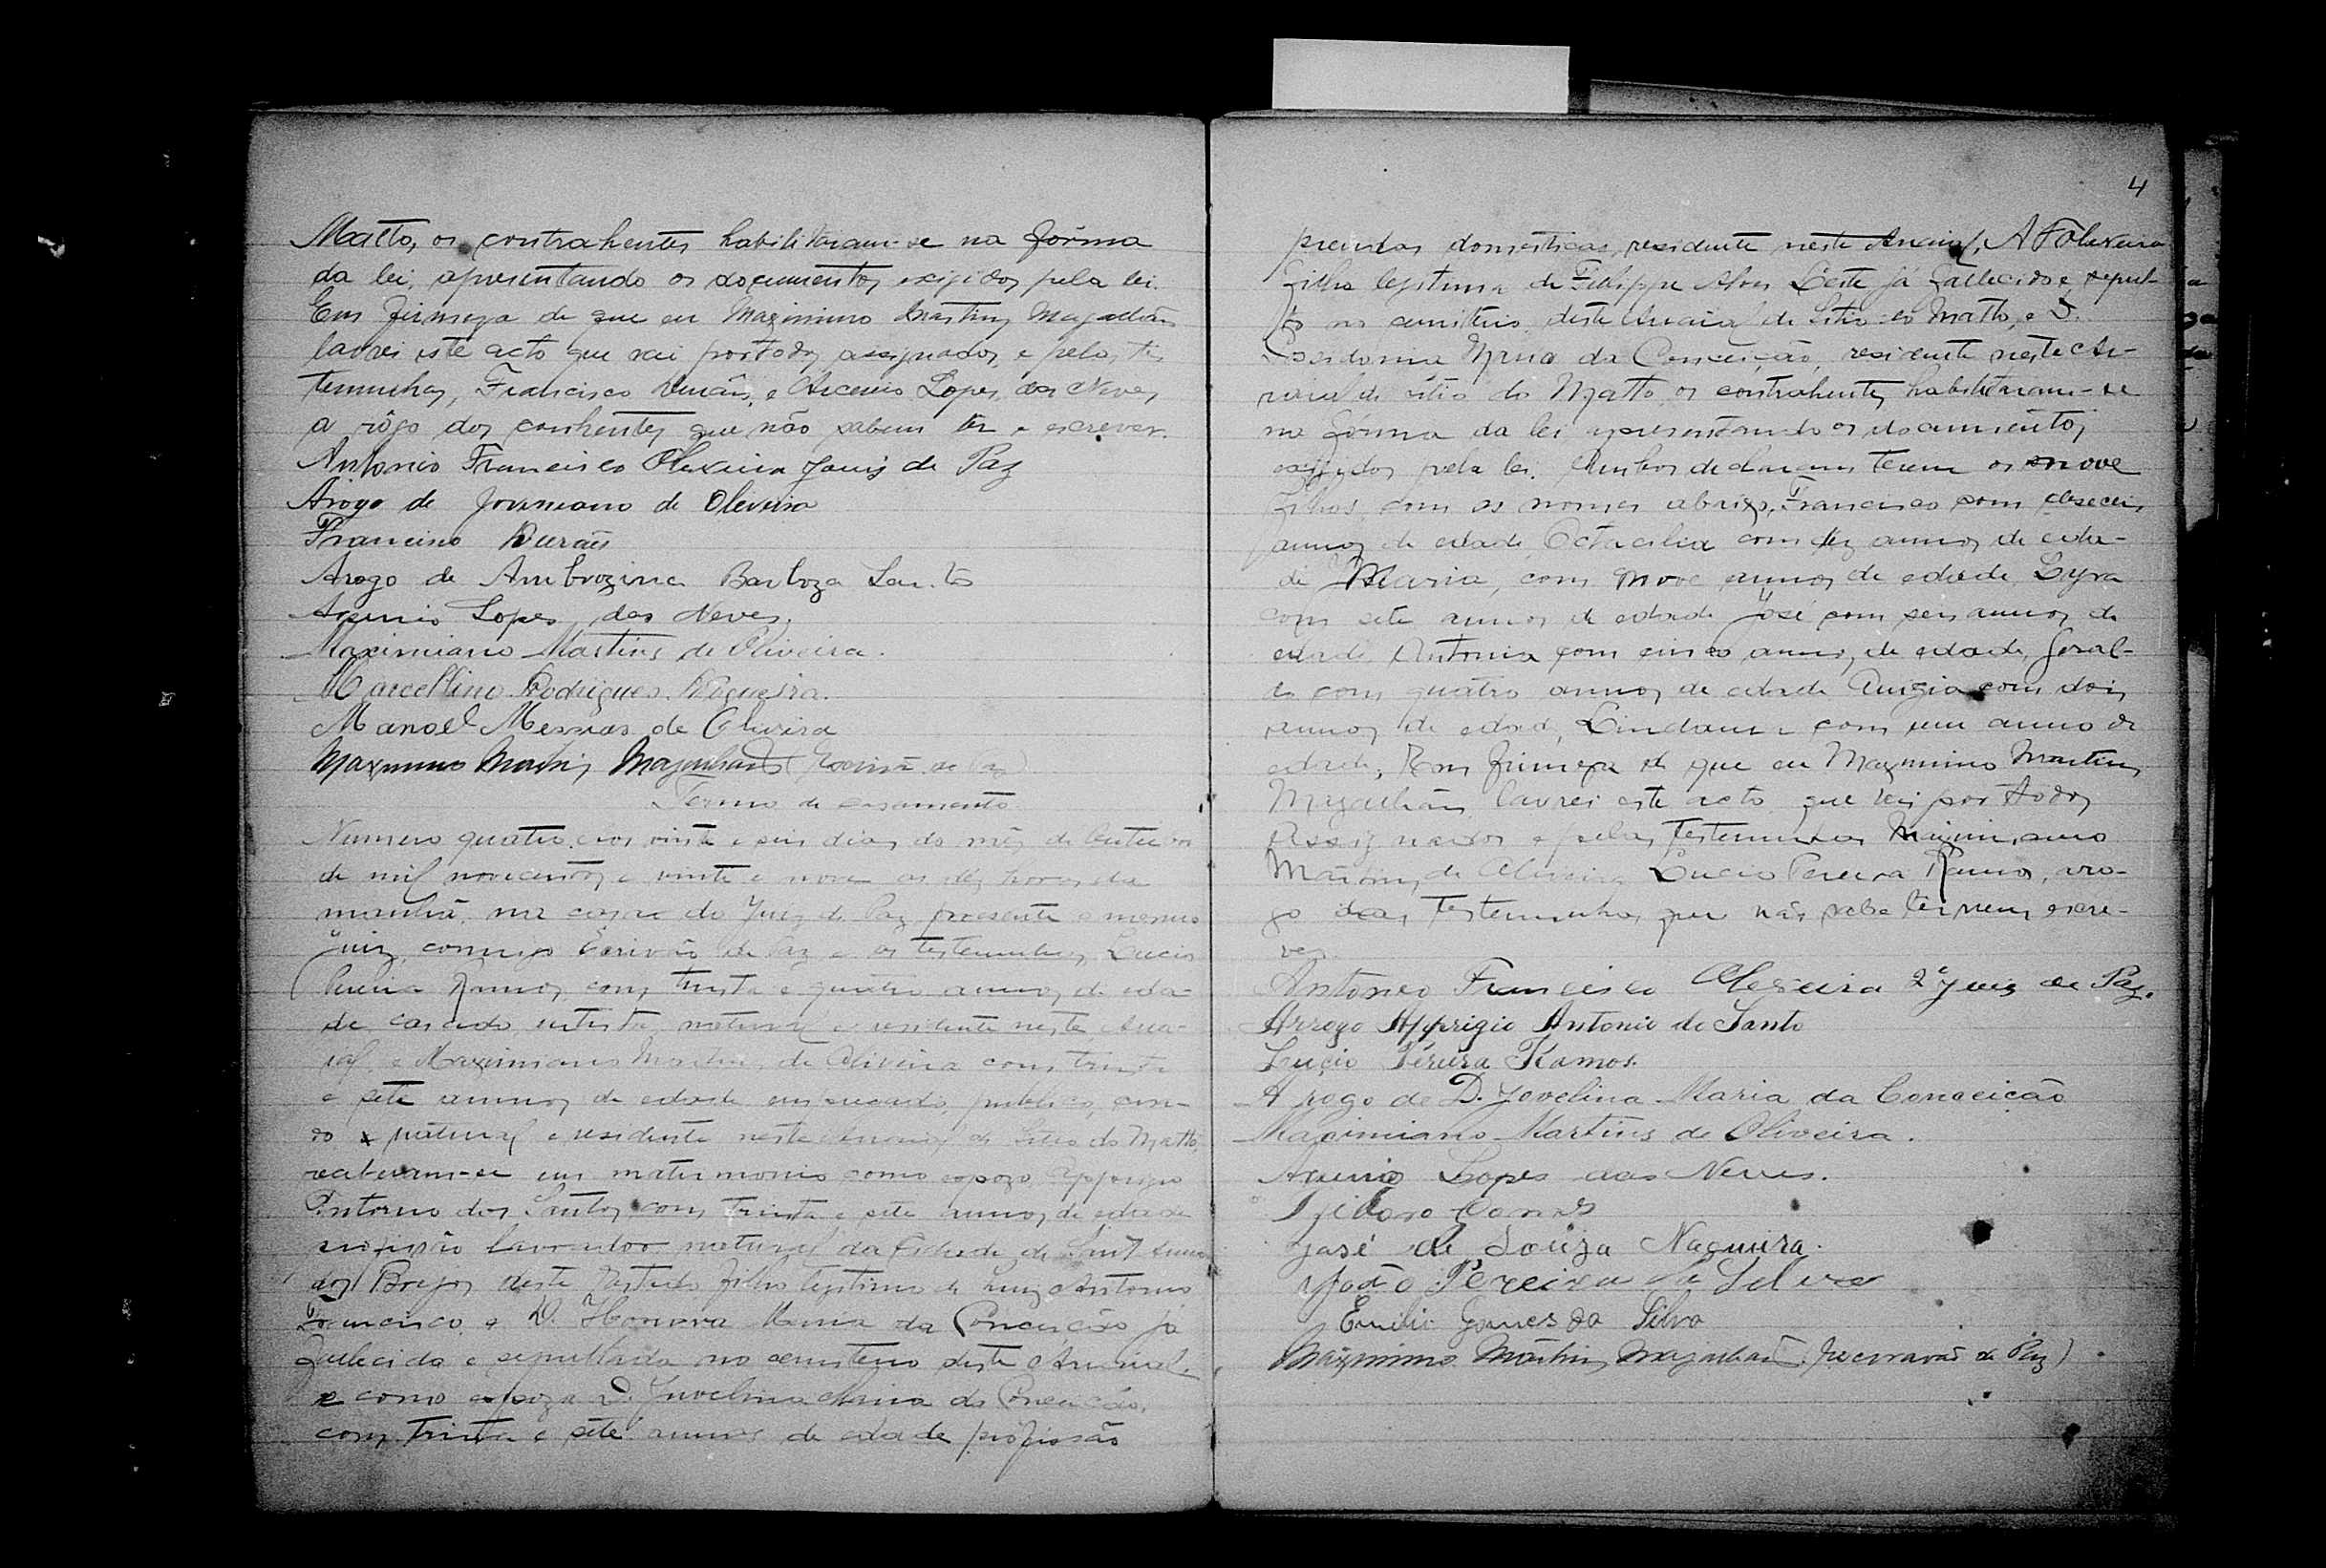 Matto, os contrahentes habilitaram-se na fórma
da lei, apresentando os documentos exigidos pela lei.
Em firmeza de que eu Maximino Martins Magalhães
lavrei este acto que vai por todos assignados, e pelas tes
temunhas, Francisco Durães, e Arcenio Lopes das Neves
a rôgo dos conhentes que não sabem ler e escrever.
Antonio Francisco Olexeira Jouis de Paz
Arogo de Joviniano de Oliveira
Francisco Durães
Arogo de Ambrozina Barboza Santo
Arsenio Lopes das Neves.
Maximiano Martins de Oliveira.
Marcellino Rodrigues Nogueira.
Manoel Messias de Oliveira
Maximino Martins Magalhães (Escrivão de Paz)
Termo de casamento
Numero quatro. Aos vinte e seis dias do mês de Outubro
de mil novecentos e vinte e nove as dez horas da
manhã, na casa do Juiz de Paz presente o mesmo
Juiz, commigo Escrivão de Paz e as testemunhas, Lucio
Pereira Ramos, com trinta e quatro annos de eda-
de casado, artista, natural e residente neste Arra-
ial, e Maximiano Martins de Oliveira com trinta
e sete annos de edade empregado publico, casa-
do e natural e residente neste Arraial de Sitio do Matto,
receberam-se em matrimonio como espozo Apprigio
Antonio dos Santos com trinta e sete annos de edade
profissão lavrador natural da Cidade de Sant'Anna
dos Brejos deste Estado filho legitimo de Luiz Antonio
Francisco e D. Honora Maria da Conceição já
fallecida e sepultada no cemiterio deste Arraial
e como espoza D. Juvelina Maria da Conceição,
com trinta e sete annos de edade profissão
4
prendas domesticas, residente neste Arraial, A F Olexeira
filha legitima de Felippe Alves Leste já fallecido e sepul-
to no cemiterio deste Arraial de Sitio do Matto, e D.
Maria da Conceição, residente neste Ar-
raial de Sitio do Matto os contrahentes habilitaram-se
na fórma da lei apresentando os documentos
exigidos pela lei. Ambos declaram terem os nove
filhos, com os nomes abaixo, Francisco com deseceis
annos de edade, Octacilia com dez annos de eda-
de Maria, com nove annos de edade Lyra
com sete annos de edade José com seis annos de
edade, Antonia com cinco annos, de edade, Geral-
do com quatro annos de edade com dois
annos de edade, Lindaura com um anno de
edade, Em firmeza de que eu Maximino Martins
Magalhães lavrei este acto que vai por todos
assignados e pelas testemunhas Maximiano
Martins de Oliveira Lucio Pereira Ramos, aro-
go das testemunhas que não sabe lêr nem escre-
ver.
Antonio Francisco Olexeira 2º Juis de Paz.
Arrogo Apprigio Antonio do Santo
Luçio Pereira Ramos.
A rogo de D. Jovelina Maria da Conceição
Maximiano Martins de Oliveira.
Arsenio Lopes das Neves.
José de Souza Nogueira.
João Pereira da Silva
Emilio Gomes da Silva
Maximino Martins Magalhães (Escrivão de Paz)